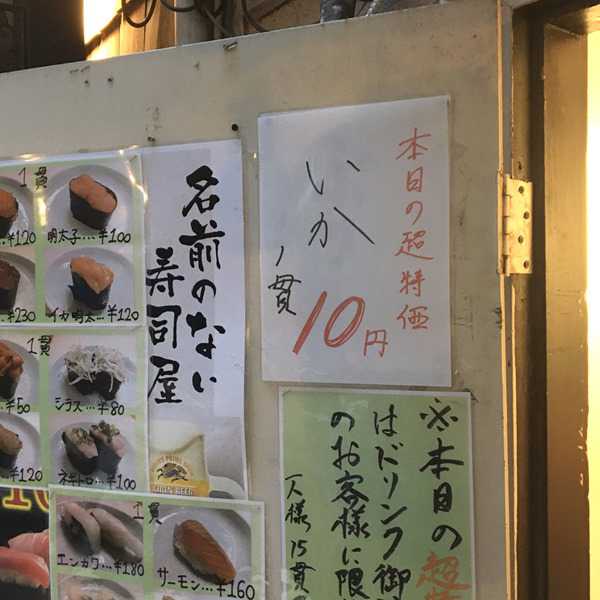 本日の超特価
いか
1貫
10円
名前のない
寿司屋
1貫
¥120
明太子…¥100
¥230
イカ明太…¥120
1貫
¥50
シラス…¥80
¥120
ネギトロ…¥100
1貫
エンガワ…¥180
サーモン…¥160
※本日の超
はドリンク御
のお客様に限
一人様、15貫